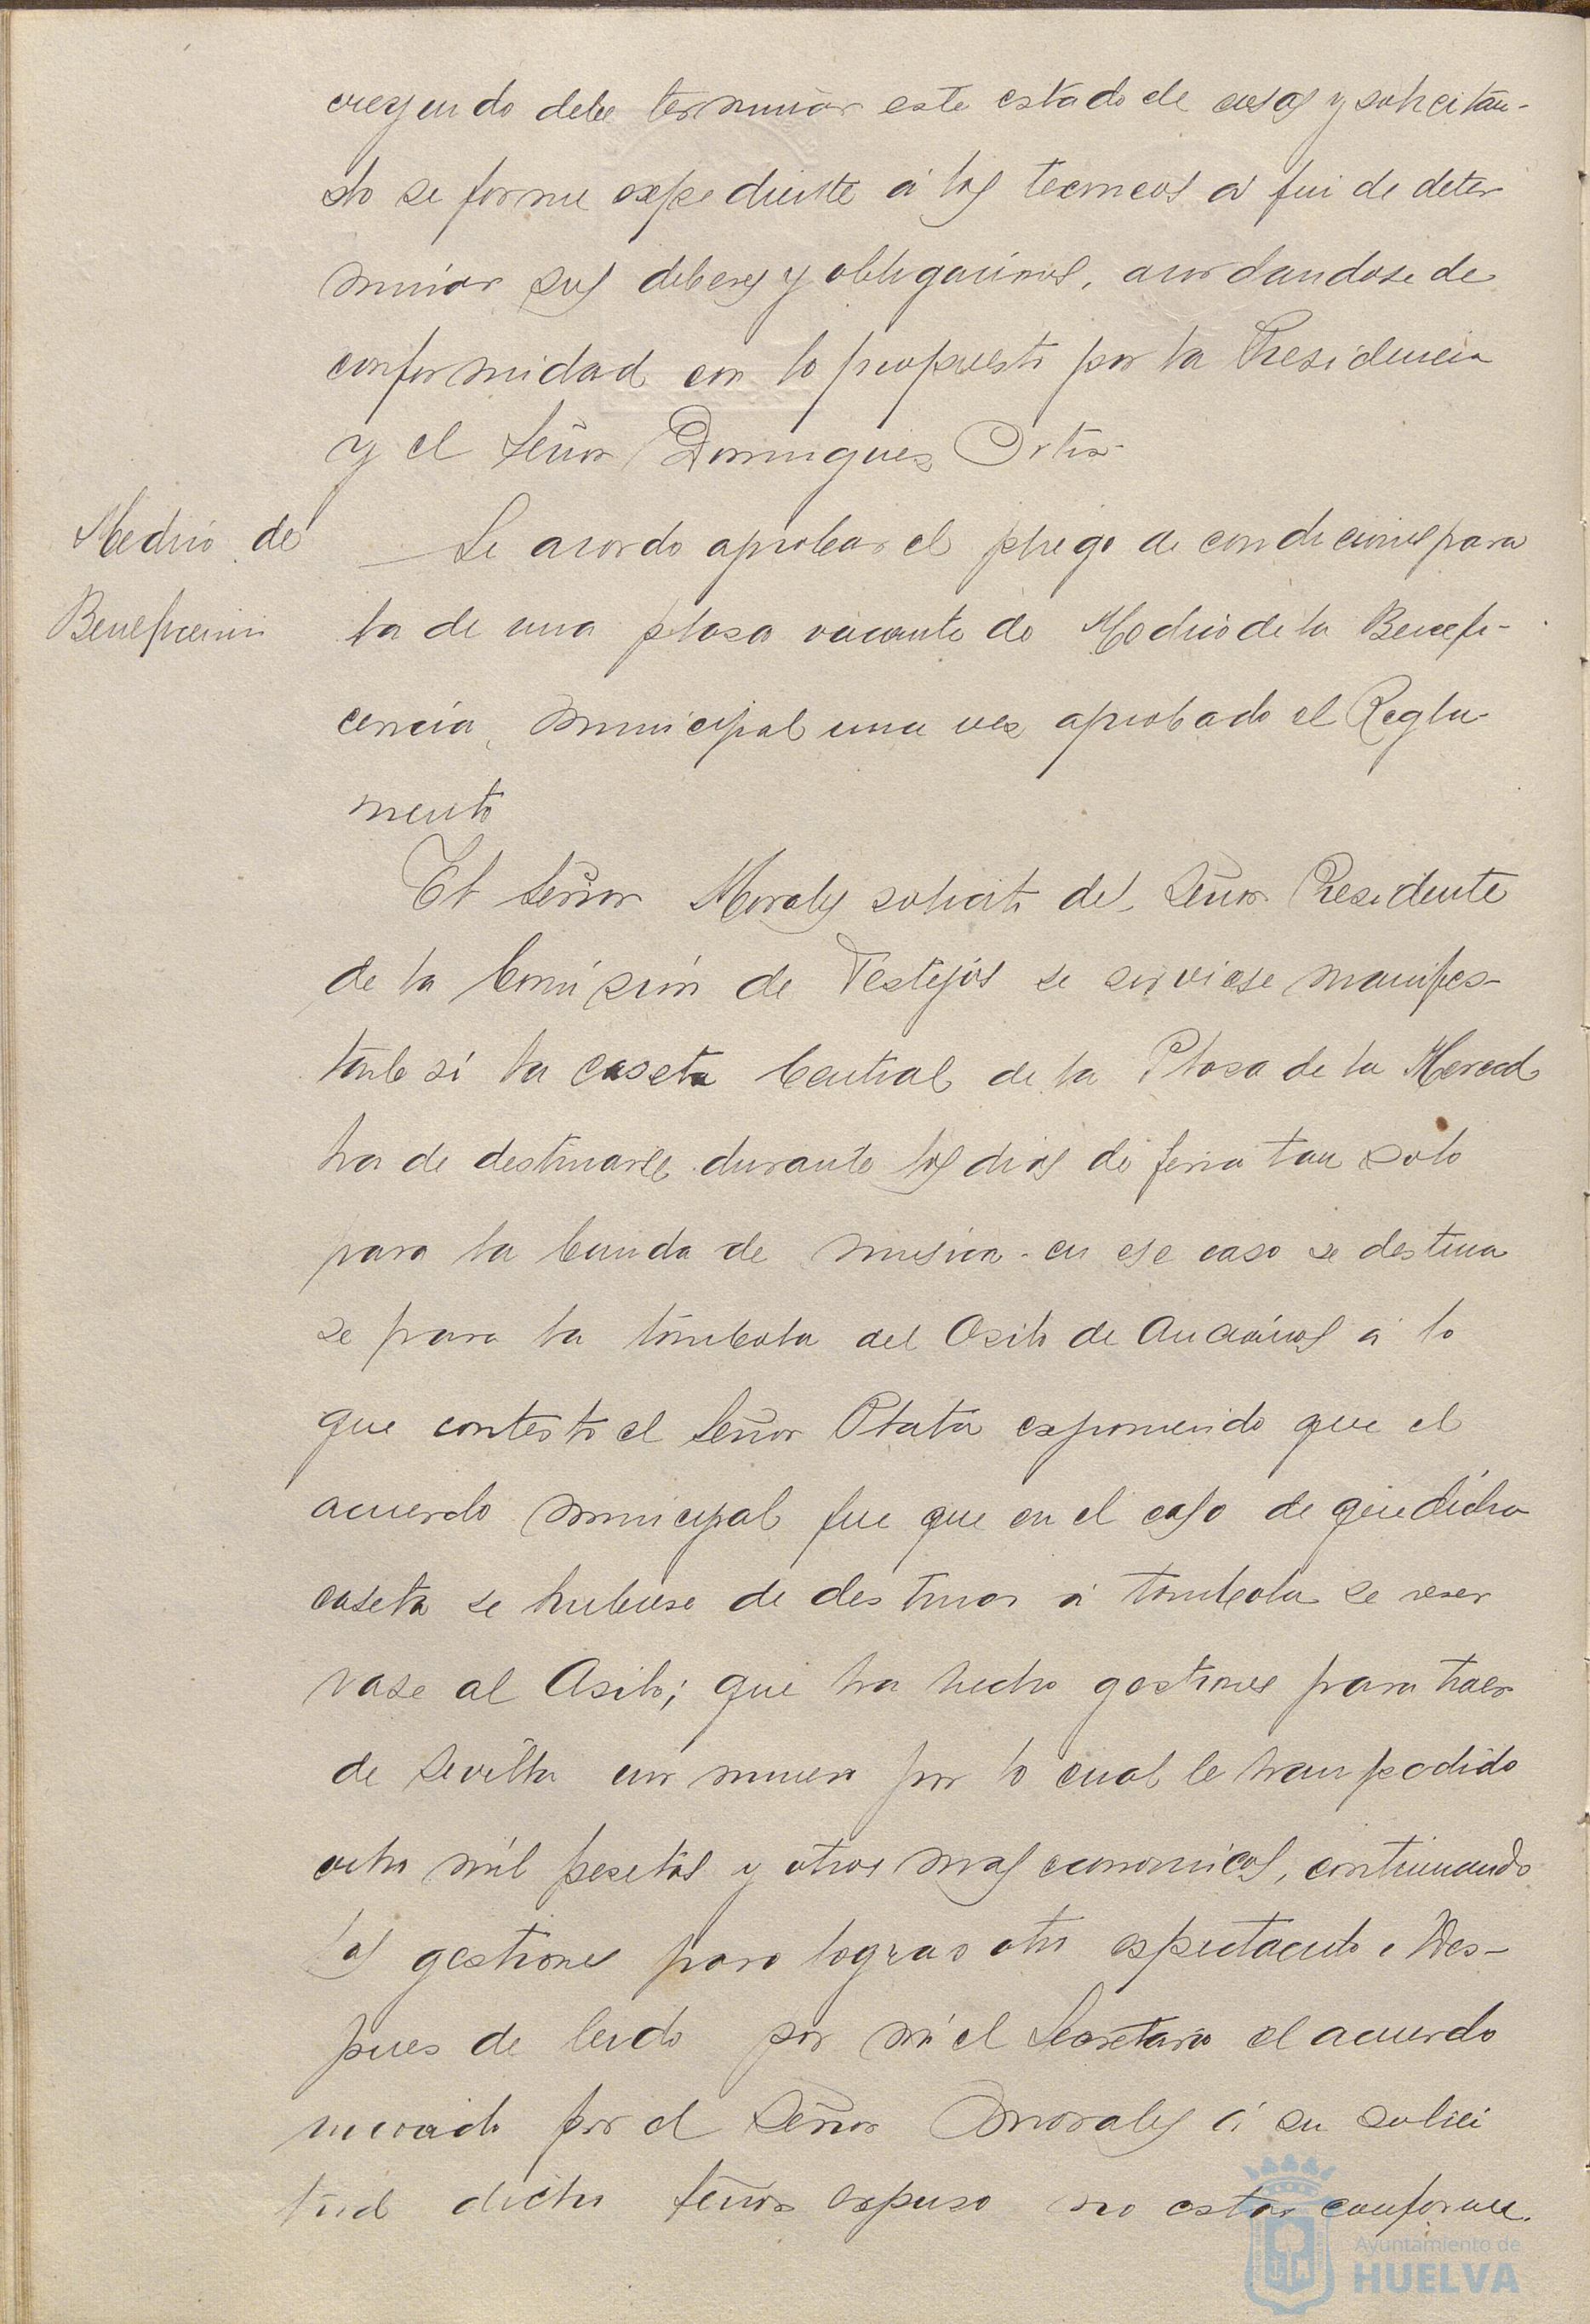 creyendo debe terminar este estado de cosas y solicitan-
do se forme expediente á los tecnicos á fin de deter
minar sus deberes y obligaciones, acordandose de
conformidad con lo propuesto por la Presidencia
y el Señor Dominguez Ortiz
Medico de
Beneficencia
Se acordo aprobar el pliego de condiciones para
la de una plaza vacante de Medico de la Benefi-
cencia, municipal una vez aprobado el Regla-
mento
El Señor Morales solicitó del Señor Presidente
de la Comisión de Festejos se sirviese manifes-
tarle si la caseta Central de la Plaza de la Merced
ha de destinarse durante los dias de feria tan solo
para la banda de musica. en ese caso se destina
se para la tómbola del Asilo de Ancianos á lo
que contesto el Señor Plata exponiendo que el
acuerdo municipal fue que en el caso de que dicha
caseta se hubiese de destinar á tombola se reser
vase al Asilo; que ha hecho gestiones para traer
de Sevilla por lo cual le han pedido
ocho mil pesetas y otros mas economicos, continuando
las gestiones para lograr otro espectaculo. Des-
pues de leido por mi el Secretario el acuerdo
invocado por el Señor Morales á su solici
tud dicho Señor expuso no estar conforme.
Ayuntamiento de
HUELVA